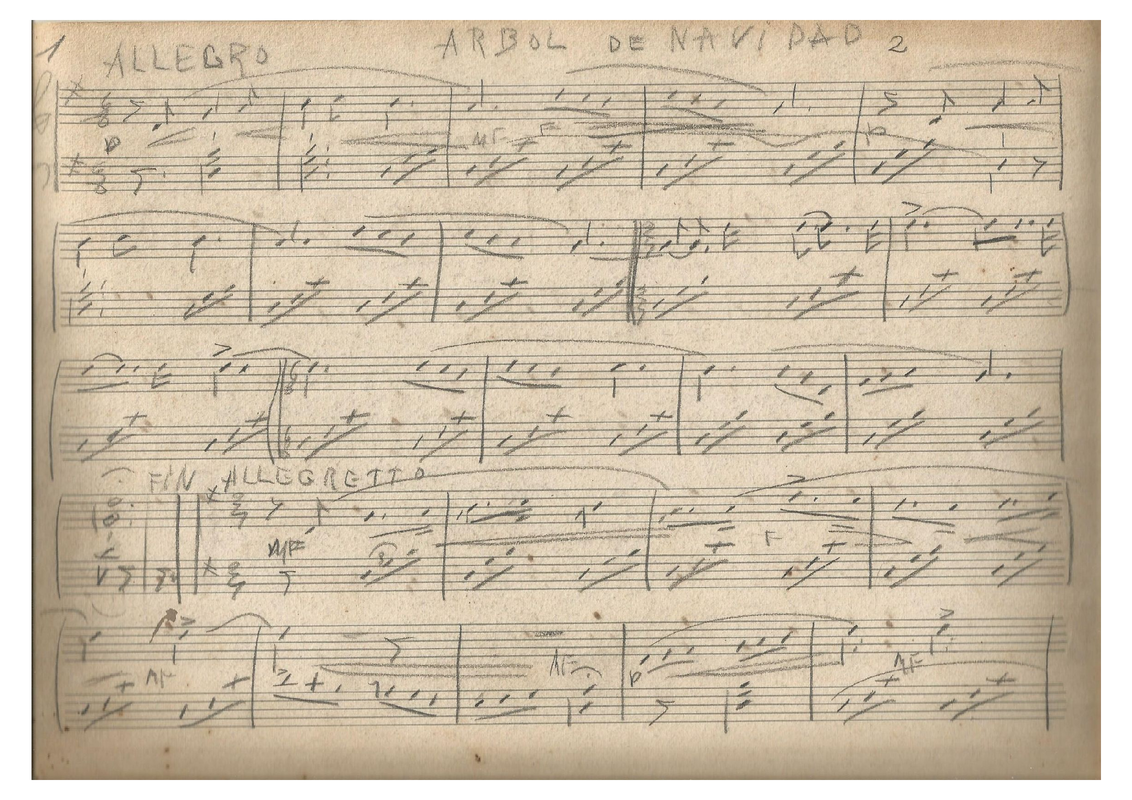 1 ALLEGRO ARBOL DE NAVIDAD 2
P MF F P
FIN ALLEGRETTO
MF F
MF MF P MF